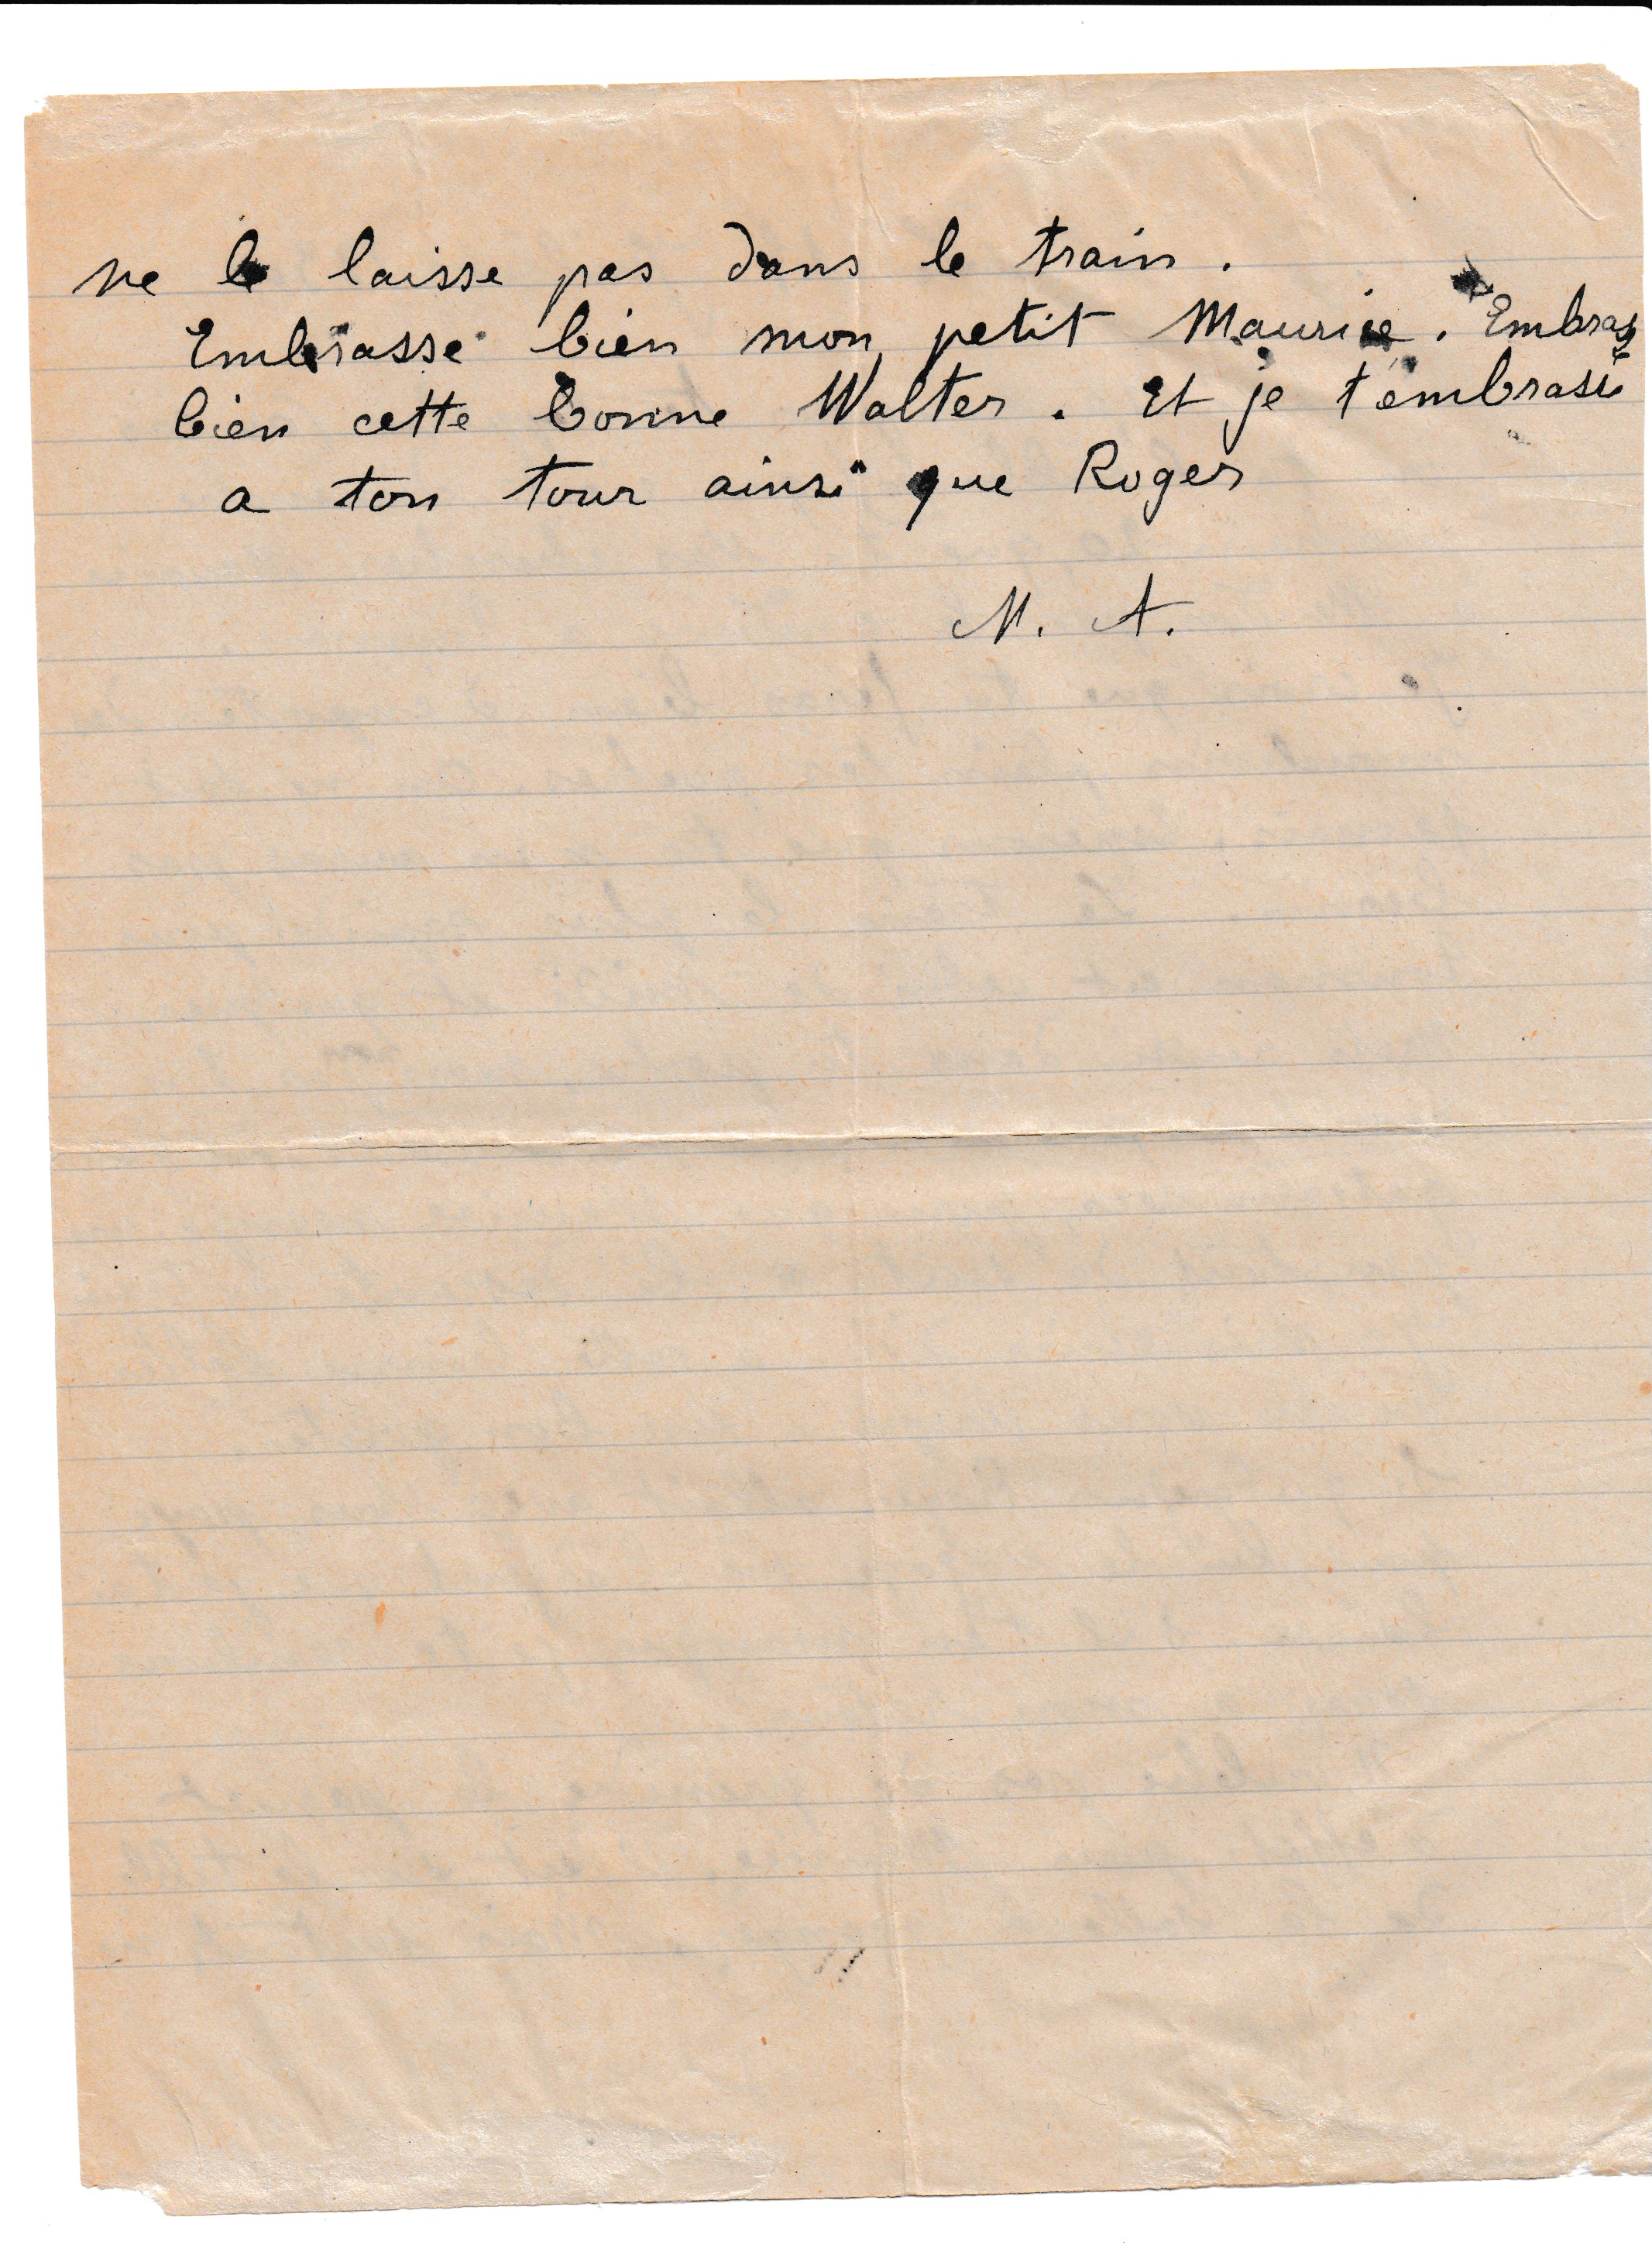 ne le laisse pas dans le train.
Embrasse bien mon petit Maurice. Embrasse
bien cette bonne Walter. Et je t'embrasse
a ton tour ainsi que Roger
M. A.